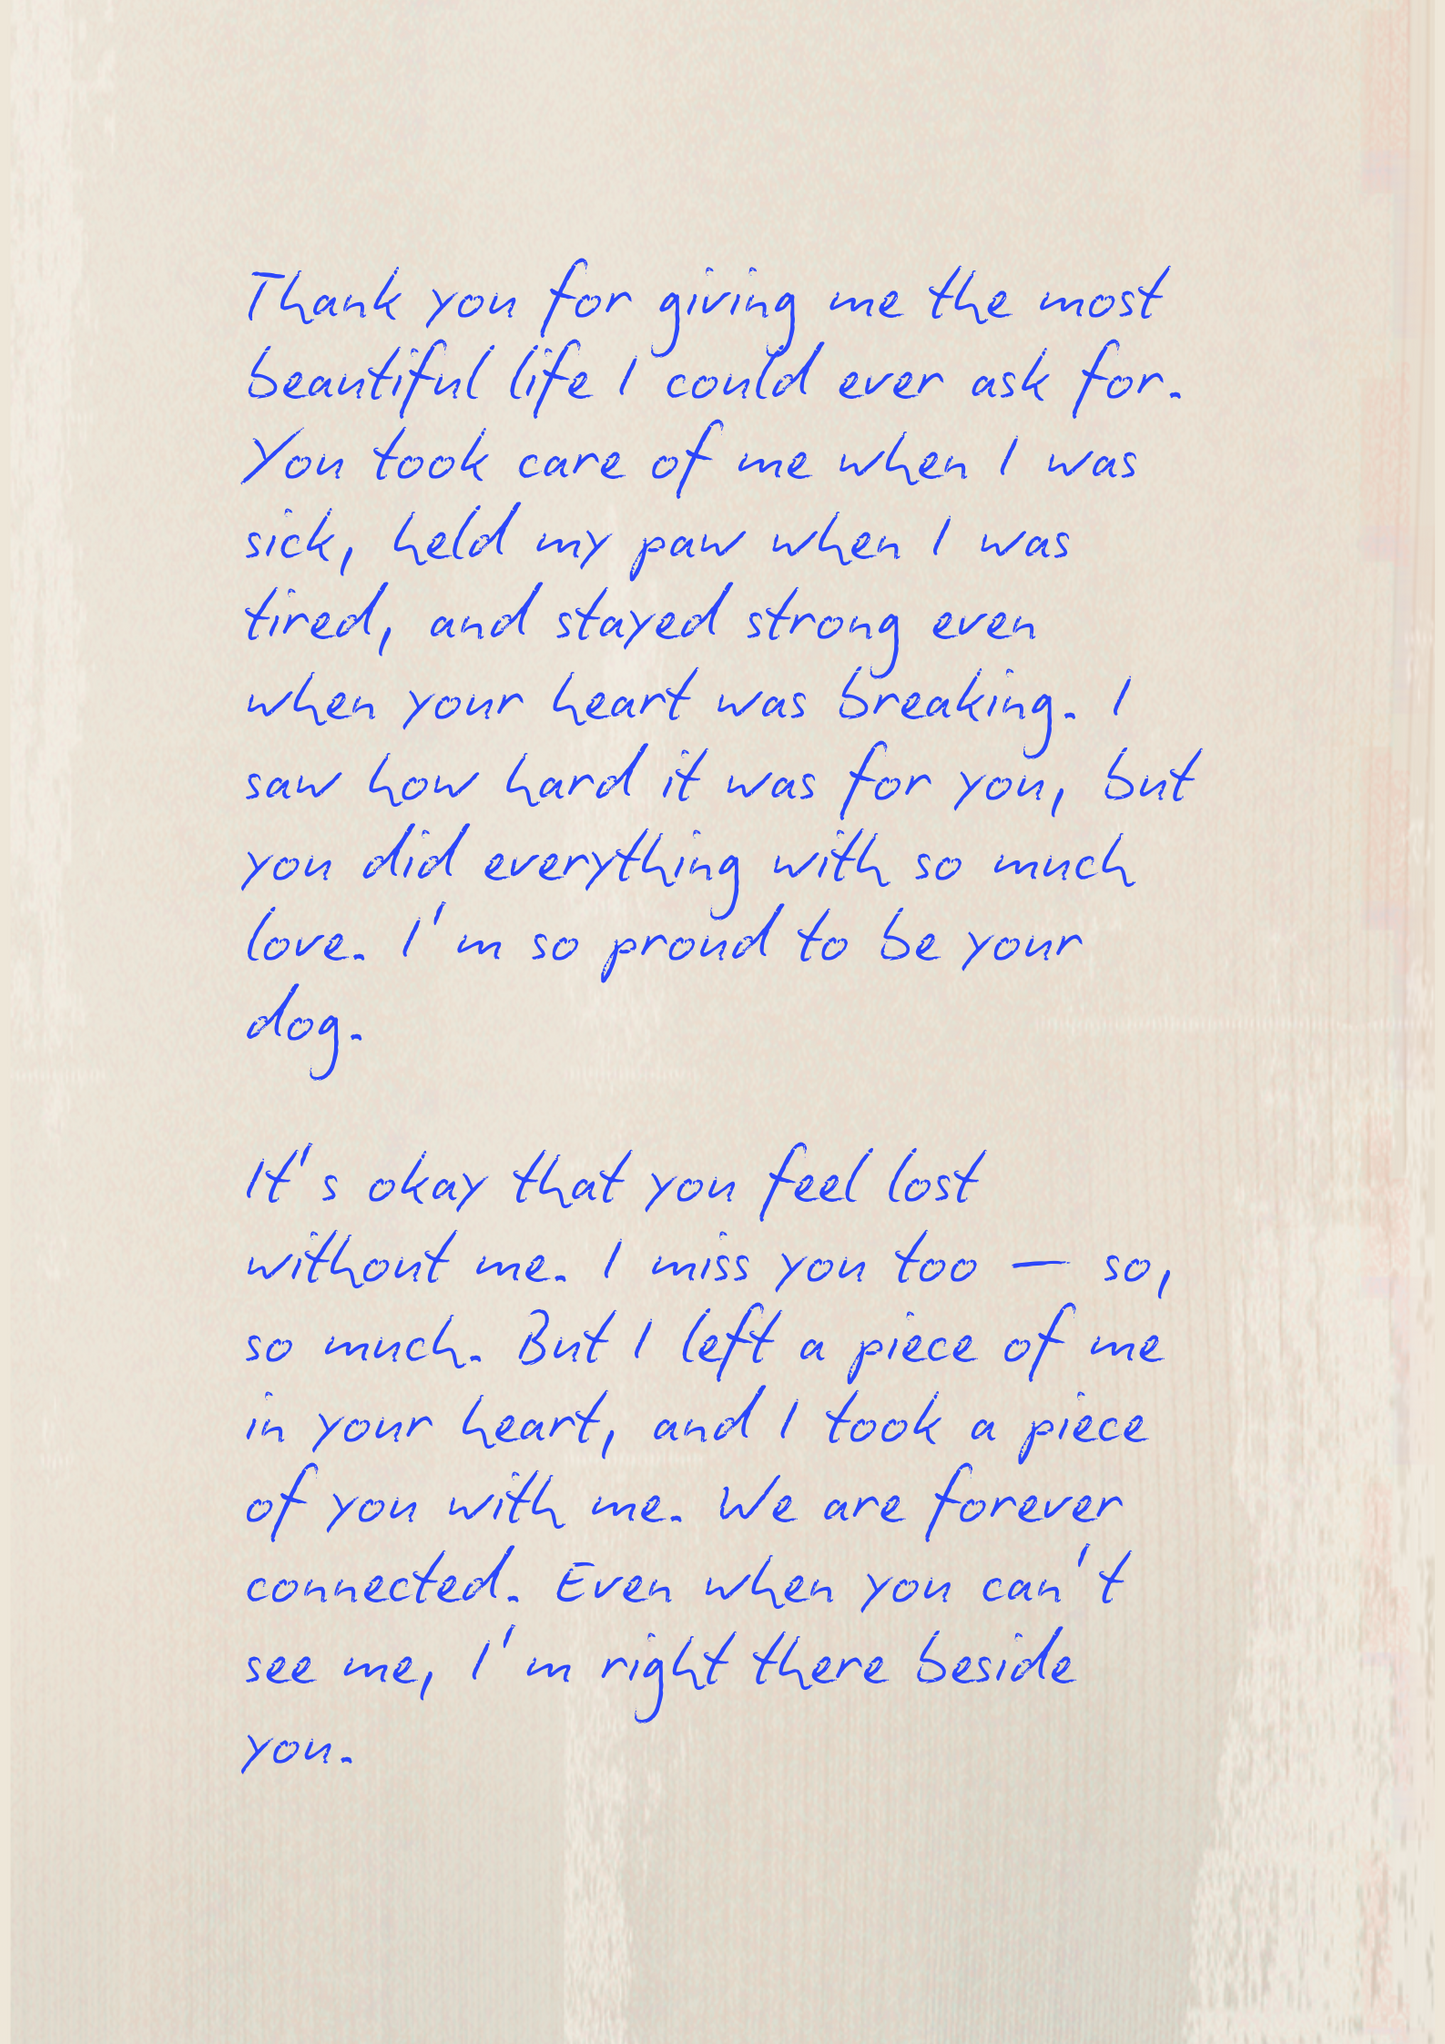 Thank you for giving me the most
beautiful life I could ever ask for.
You took care of me when I was
sick, held my paw when I was
tired, and stayed strong even
when your heart was breaking. I
saw how hard it was for you, but
you did everything with so much
love. I'm so proud to be your
dog.
It's okay that you feel lost
without me. I miss you too – so,
so much. But I left a piece of me
in your heart, and I took a piece
of you with me. We are forever
connected. Even when you can't
see me, I'm right there beside
you.